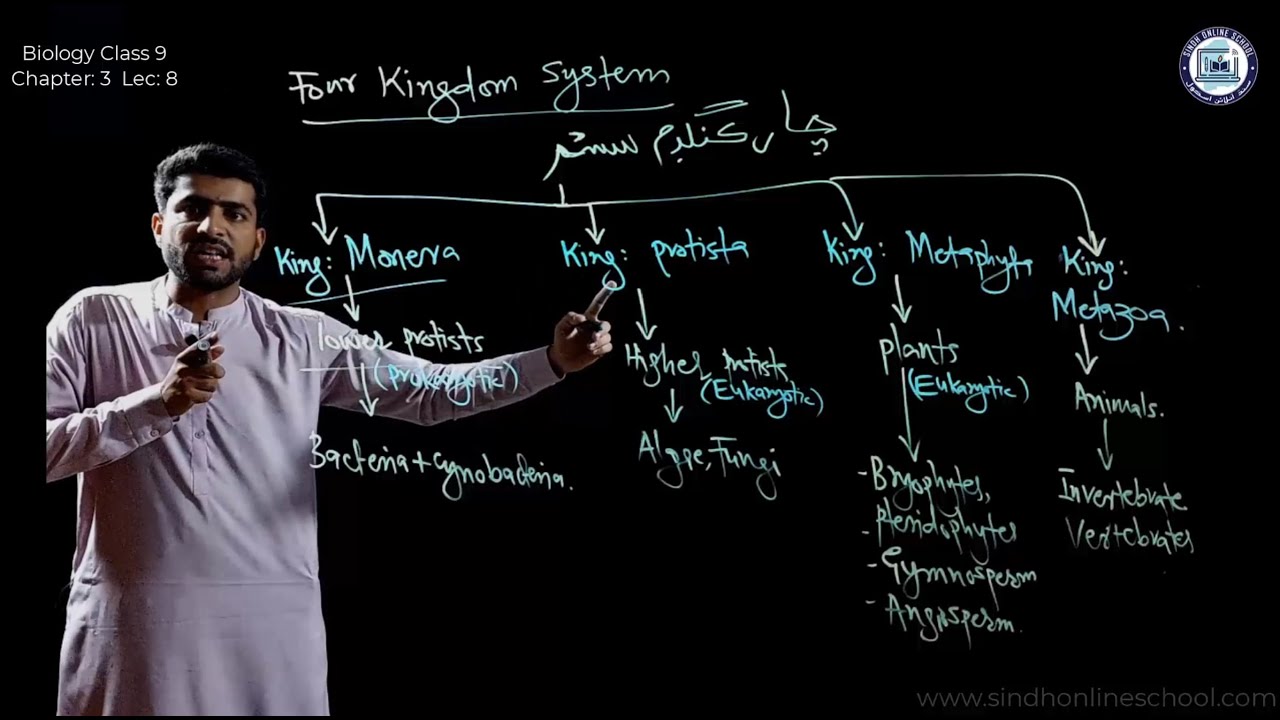 Biology Class 9
Chapter: 3 Lec: 8
SINDH ONLINE SCHOOL
سندھ آنلائن اسکول
Four Kingdom System
چار کنگڊم سسٽم
King: Monera
lower protists
(prokaryotic)
Bacteria + Cynobacteria.
King: protista
Higher protists
(Eukaryotic)
Algae, Fungi
King: Metaphyta
plants
(Eukaryotic)
- Bryophytes,
- Pteridophytes
- Gymnosperm
- Angiosperm.
King:
Metazoa.
Animals.
Invertebrate
Vertebrates
www.sindhonlineschool.com